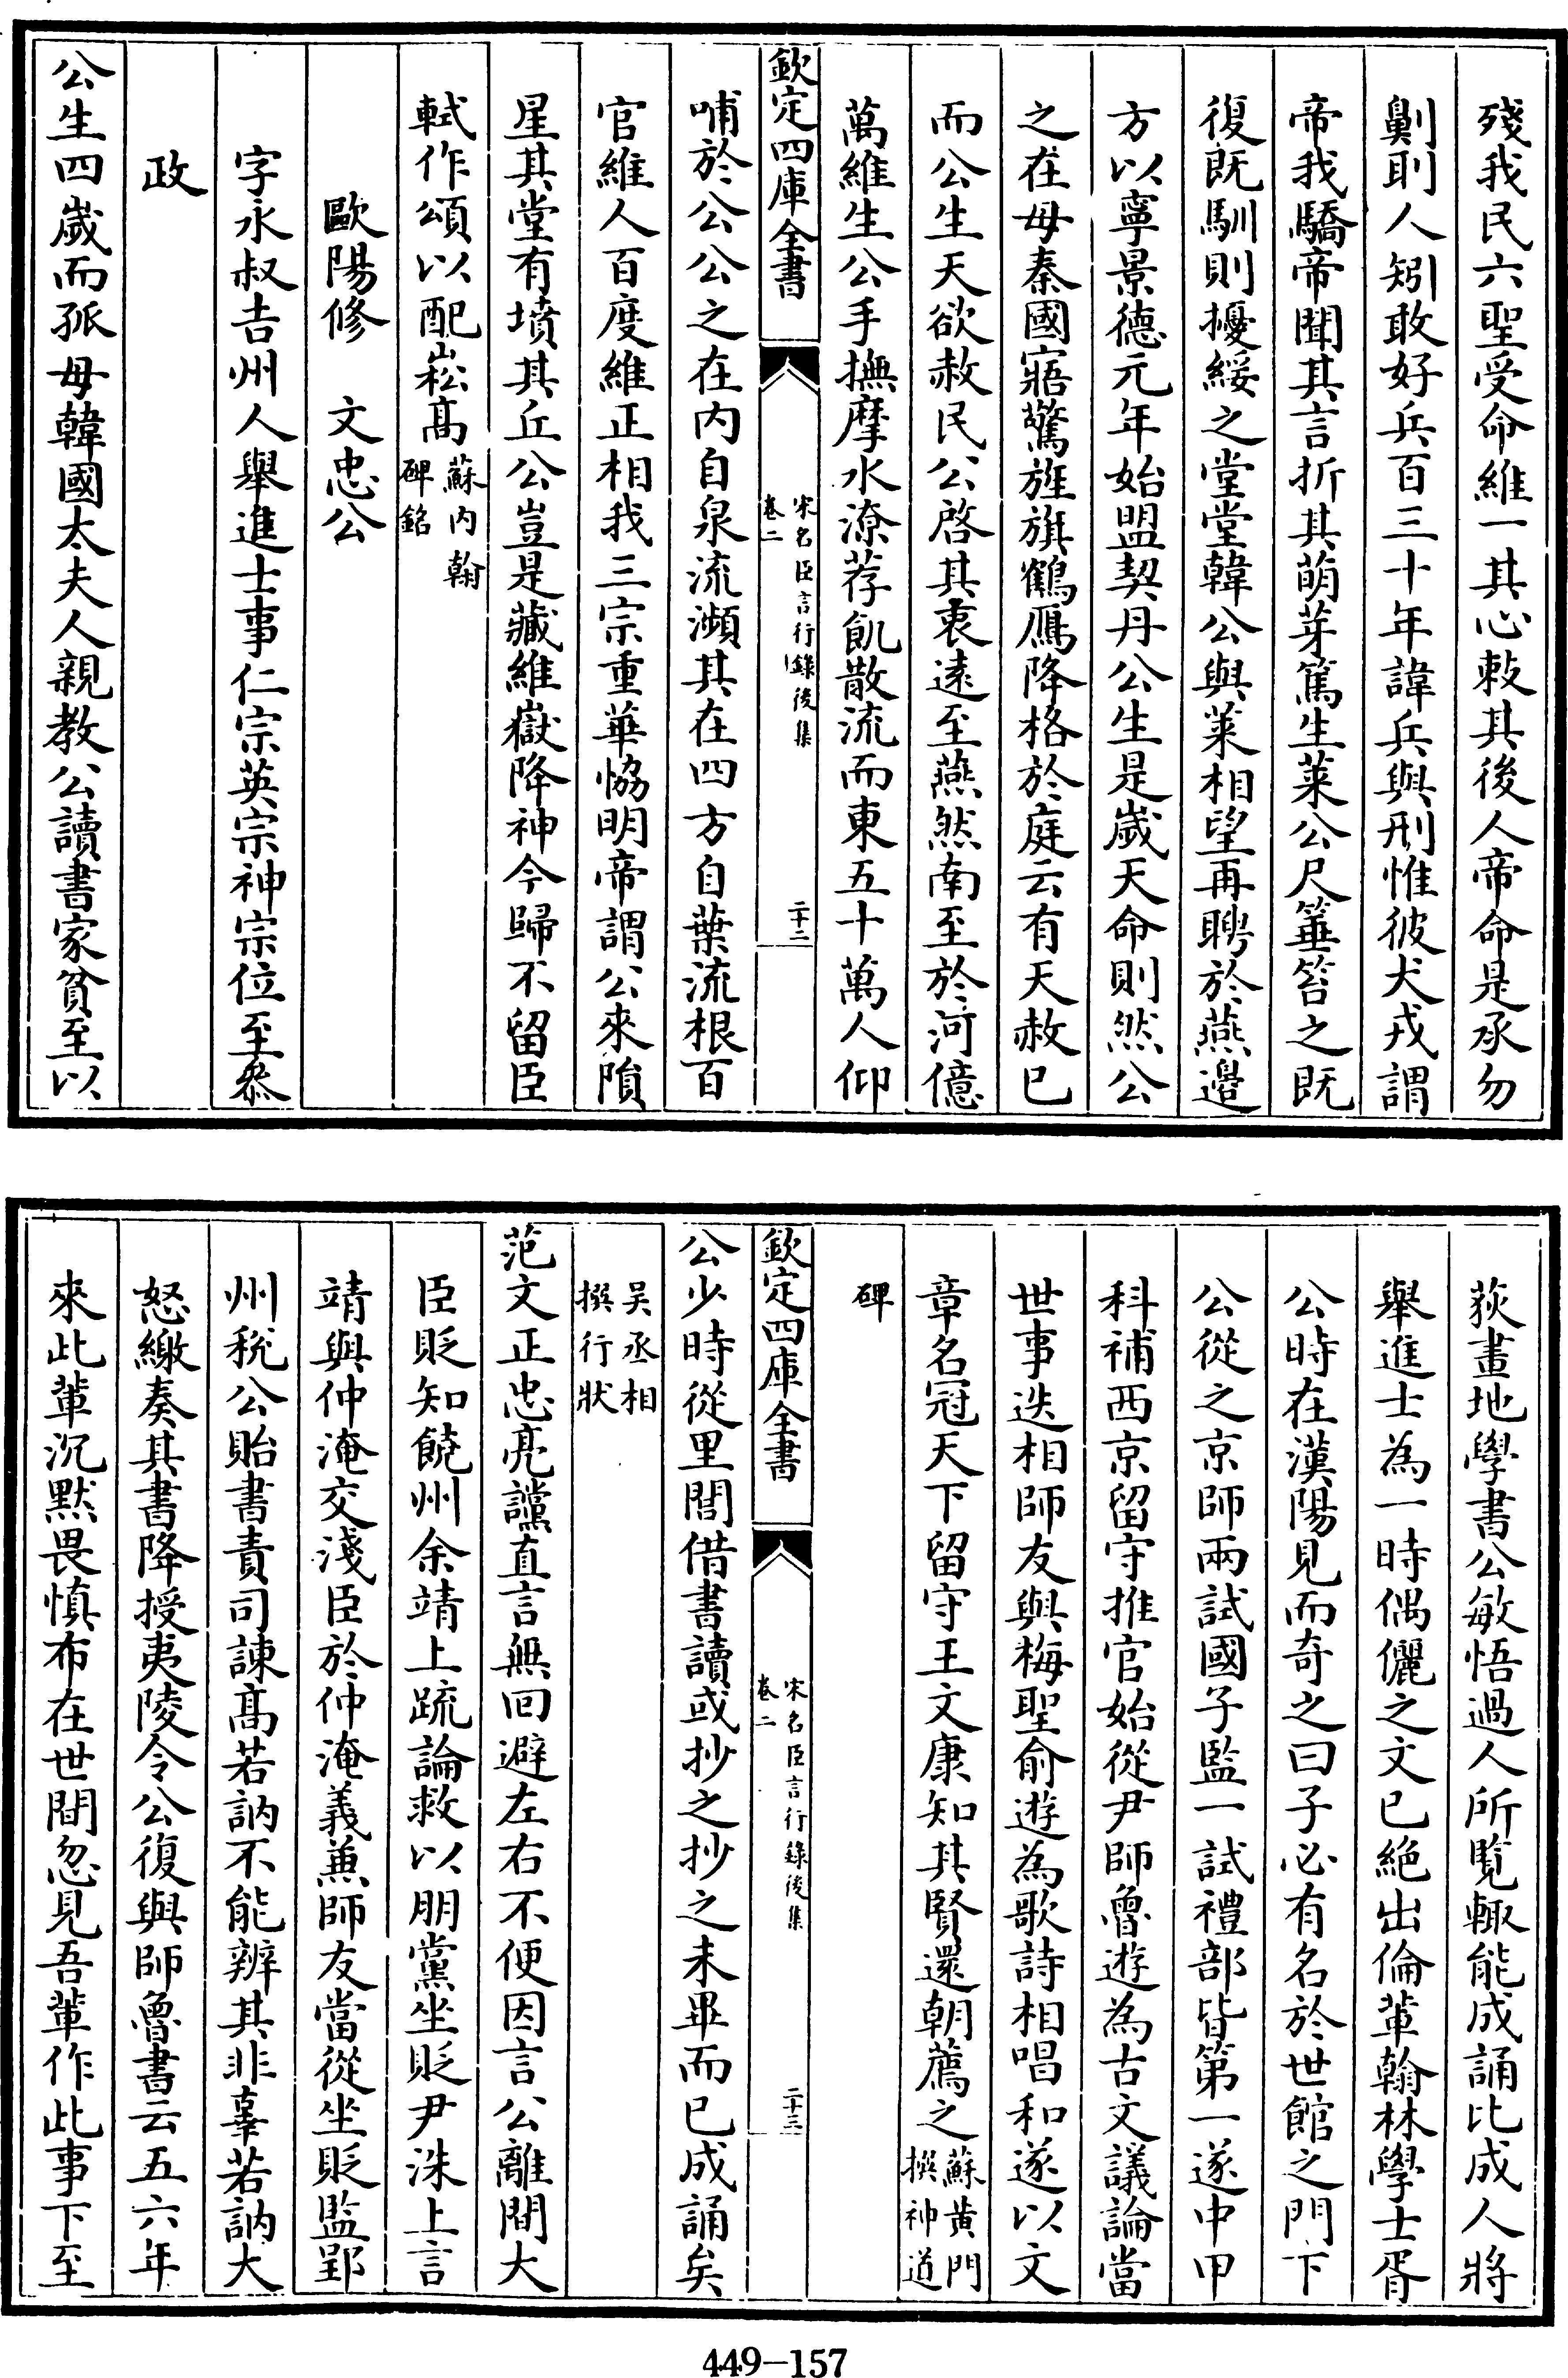 殘我民六聖受命維一其心敕其後人帝命是承勿
劓刵人矧敢好兵百三十年諱兵與刑惟彼犬戎謂
帝我驕帝聞其言折其萌芽篤生萊公尺箠笞之既
復既馴則擾綏之堂堂韓公與萊相望再聘於燕邉
方以寧景德元年始盟契丹公生是歲天命則然公
之在母秦國寤驚旌旗鶴鴈降格於庭云有天赦已
而公生天欲赦民公啓其衷遠至燕然南至於河億
萬維生公手撫摩水潦荐飢散流而東五十萬人仰
欽定四庫全書
宋名臣言行錄後集
卷二
二十二
哺於公公之在内自泉流瀕其在四方自葉流根百
官維人百度維正相我三宗重華恊明帝謂公來隕
星其堂有墳其丘公豈是藏維嶽降神今歸不留臣
軾作頌以配崧髙蘇内翰碑銘
歐陽修　文忠公
字永叔吉州人舉進士事仁宗英宗神宗位至叅
政
公生四歲而孤母韓國太夫人親教公讀書家貧至以
荻畫地學書公敏悟過人所覧輙能成誦比成人將
舉進士為一時偶儷之文已絶出倫軰翰林學士胥
公時在漢陽見而奇之曰子必有名於世館之門下
公從之京師兩試國子監一試禮部皆第一遂中甲
科補西京留守推官始從尹師魯遊為古文議論當
世事迭相師友與梅聖俞遊為歌詩相唱和遂以文
章名冠天下留守王文康知其賢還朝薦之蘇黄門撰神道
碑
欽定四庫全書
宋名臣言行錄後集
卷二
二十三
公少時從里閭借書讀或抄之抄之未畢而已成誦矣
吴丞相撰行狀
范文正忠亮讜直言無回避左右不便因言公離間大
臣貶知饒州余靖上疏論救以朋黨坐貶尹洙上言
靖與仲淹交淺臣於仲淹義兼師友當從坐貶監郢
州税公貽書責司諫髙若訥不能辨其非辜若訥大
怒繳奏其書降授夷陵令公復與師魯書云五六年
來此軰沉黙畏慎布在世間忽見吾軰作此事下至
449-157